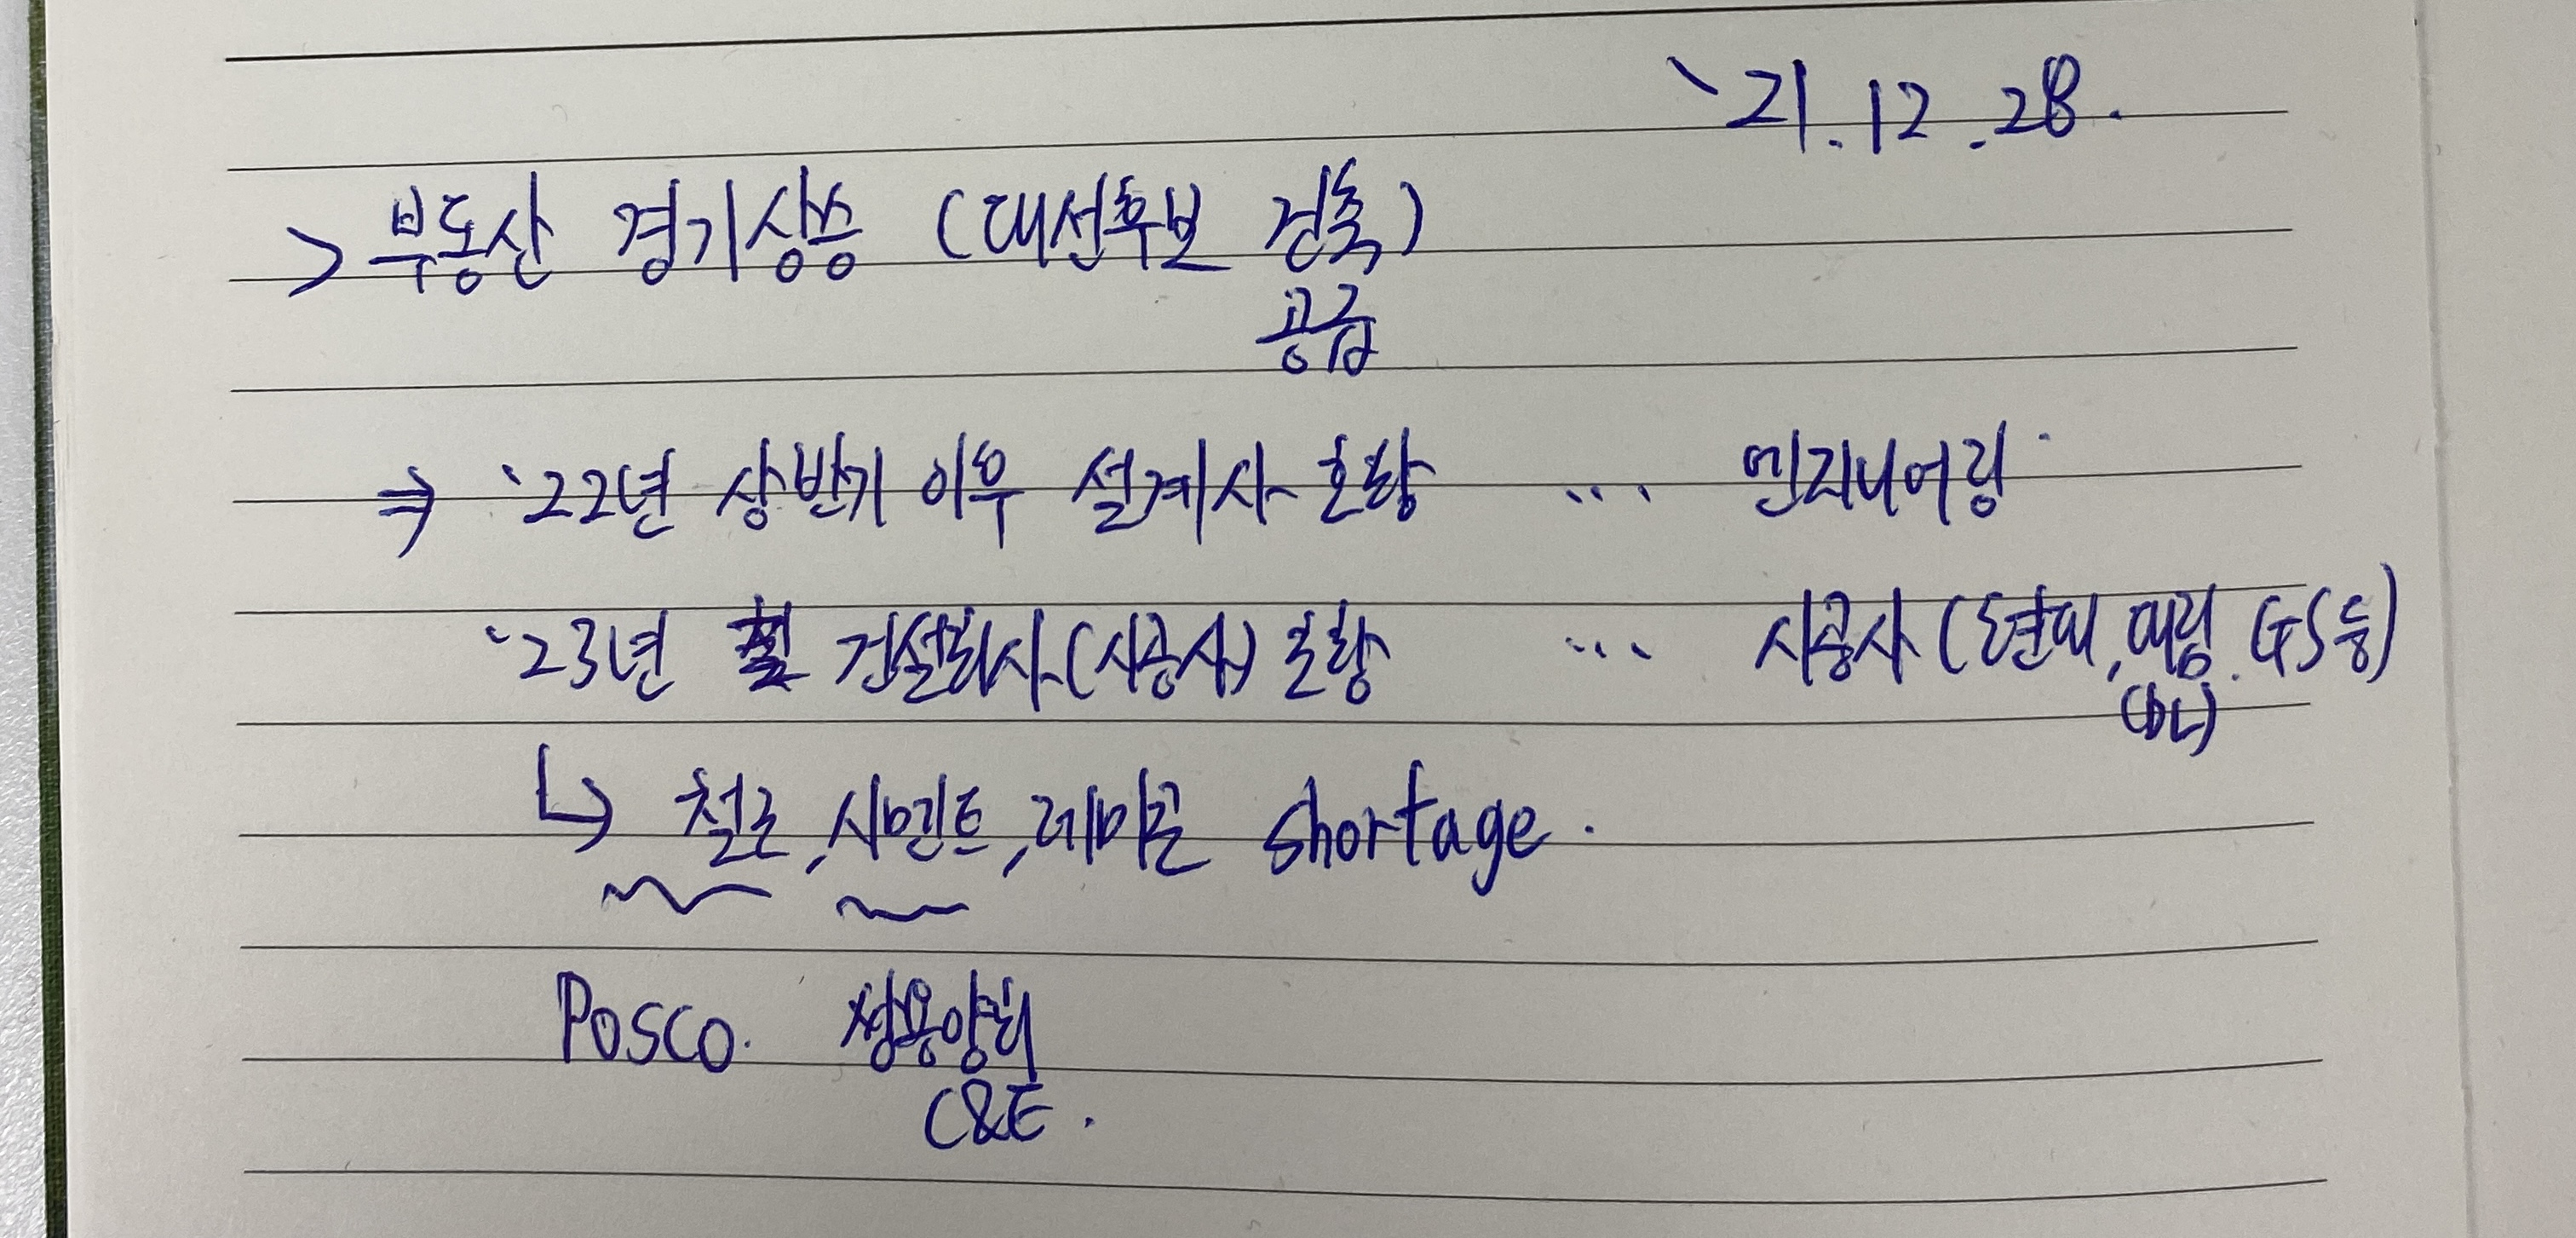 `21.12.28.
> 부동산 경기상승 (대선후보 건축)
공급
⇒ `22년 상반기 이후 설계사 호황 ... 엔지니어링
`23년 건설회사(시공사) 호황 ... 시공사 (현대, 대림. GS 등)
(DL)
↳ 철근, 시멘트, 레미콘 shortage.
Posco. 쌍용양회
C&E.